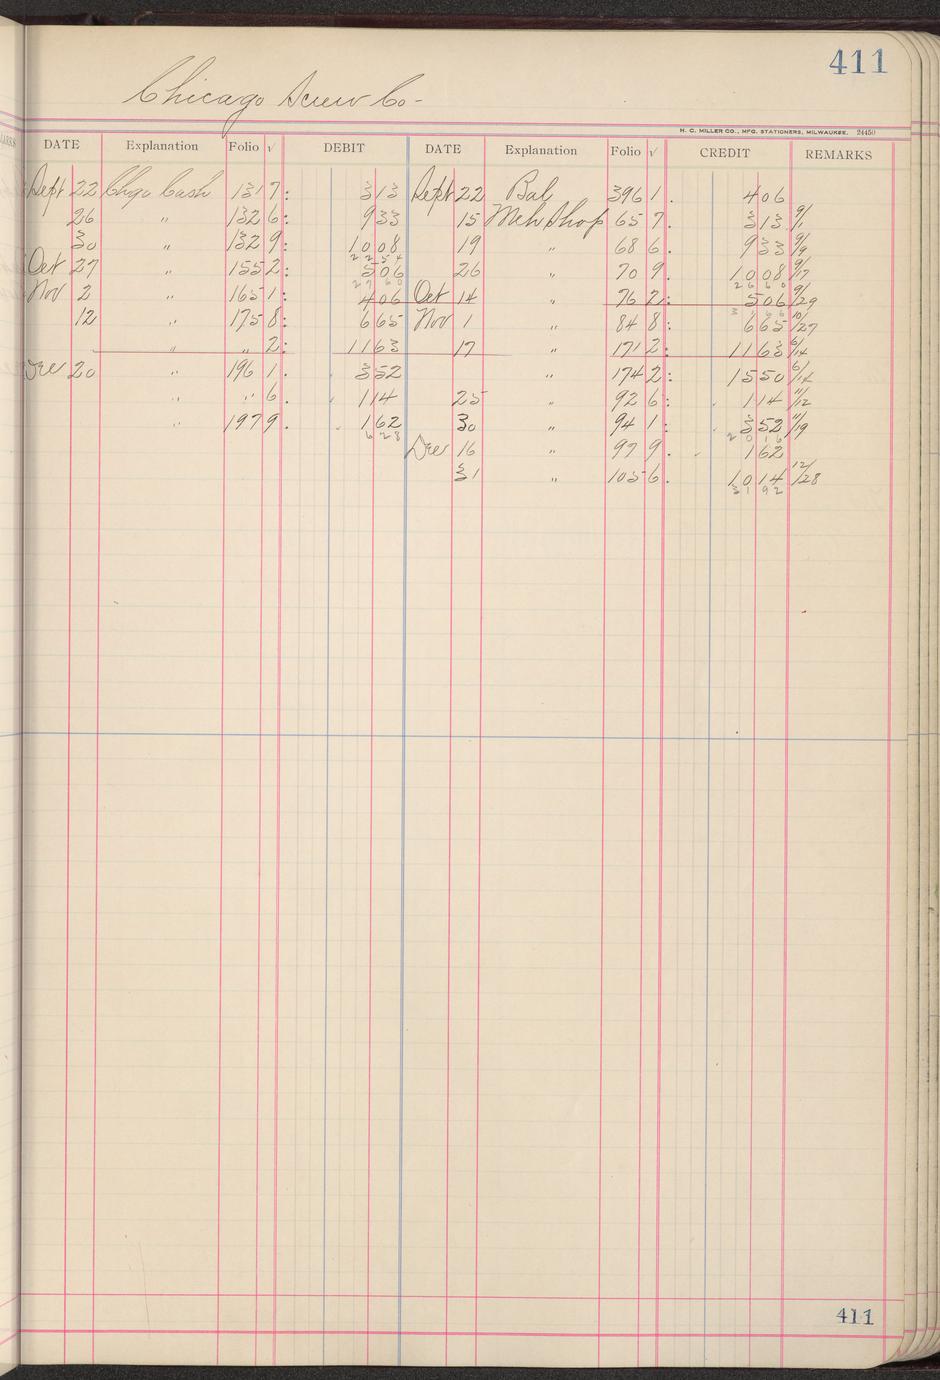 411
Chicago Screw Co-
H. C. MILLER CO., MFG. STATIONERS, MILWAUKEE. 24450
DATE Explanation Folio √ DEBIT DATE Explanation Folio √ CREDIT REMARKS
Sept 22 Chgo Cash 131 7: 313 Sept 22 Bal 396 1. 406
26 " 132 6: 933 15 Mch Shop 65 7. 313 9/1
30 " 132 9: 1008 19 " 68 6. 933 9/9
2254
Oct 27 " 155 2: 506 26 " 70 9. 1008 9/17
2760 2660
Nov 2 " 165 1: 406 Oct 14 " 76 2: 506 9/29
12 " 175 8: 665 Nov 1 " 84 8: 665 10/27
" " 2: 1163 17 " 171 2: 1163 6/14
Dec 20 " 196 1. 352 " 174 2: 1550 6/14
" " 6. 114 25 " 92 6: 114 11/12
" 197 9. 162 30 " 94 1: 352 11/19
628 2016
Dec 16 " 97 9. 162
31 " 105 6. 1014 12/28
3192
411